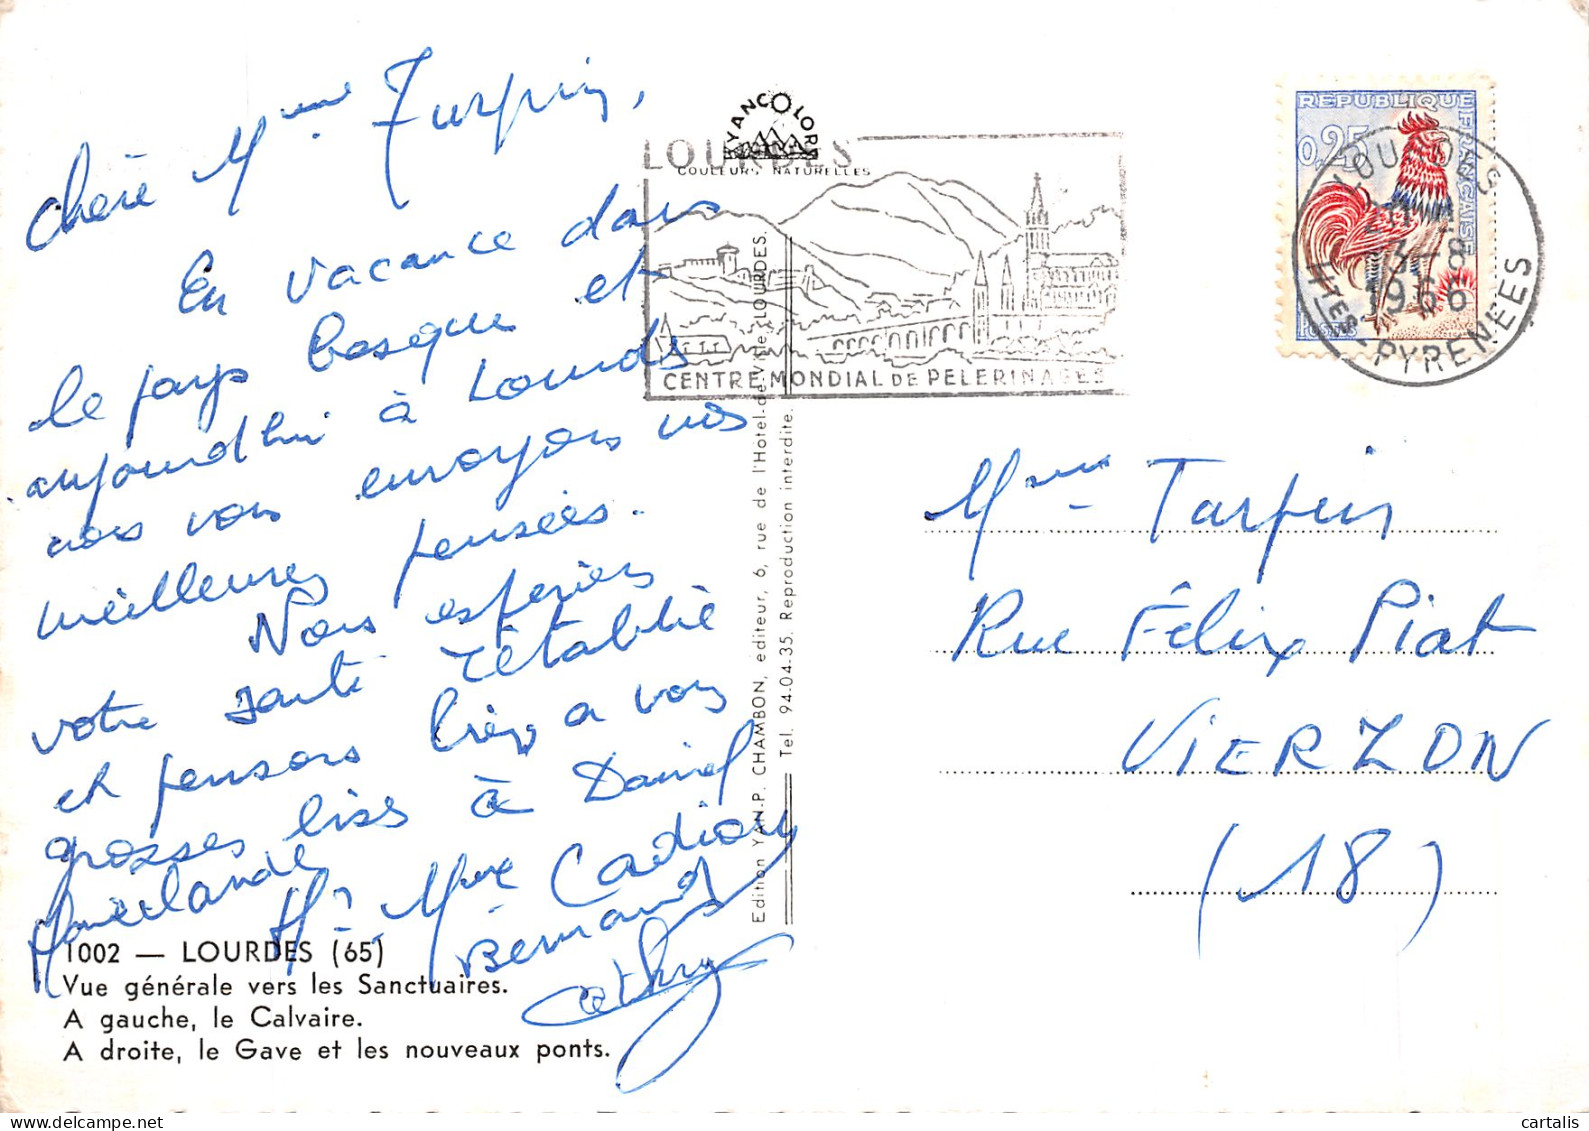 Chère Mme Turpin,
En vacance dans
le pays basque et
aujourdhui à Lourds
nous vous envoyons nos
meilleures pensées.
Nous espériens
votre santé rétablié
et pensons bien a vous
grosses biss à Daniel
Mr Mme Cadiou
Bernard
Cathy
1002 — LOURDES (65)
Vue générale vers les Sanctuaires.
A gauche, le Calvaire.
A droite, le Gave et les nouveaux ponts.
YANCOLOR
COULEURS NATURELLES
LOURDES
CENTRE MONDIAL DE PELERINAGES
Edition YAN-P. CHAMBON, editeur, 6, rue de l'Hotel-de-Ville, LOURDES.
Tel. 94-04-35. Reproduction interdite.
REPUBLIQUE FRANÇAISE
0,25
POSTES
LOURDES
3-8
1966
HTES-PYRENEES
Mme Tarpin
Rue Félix Piat
VIERZON
(18)
cartalis